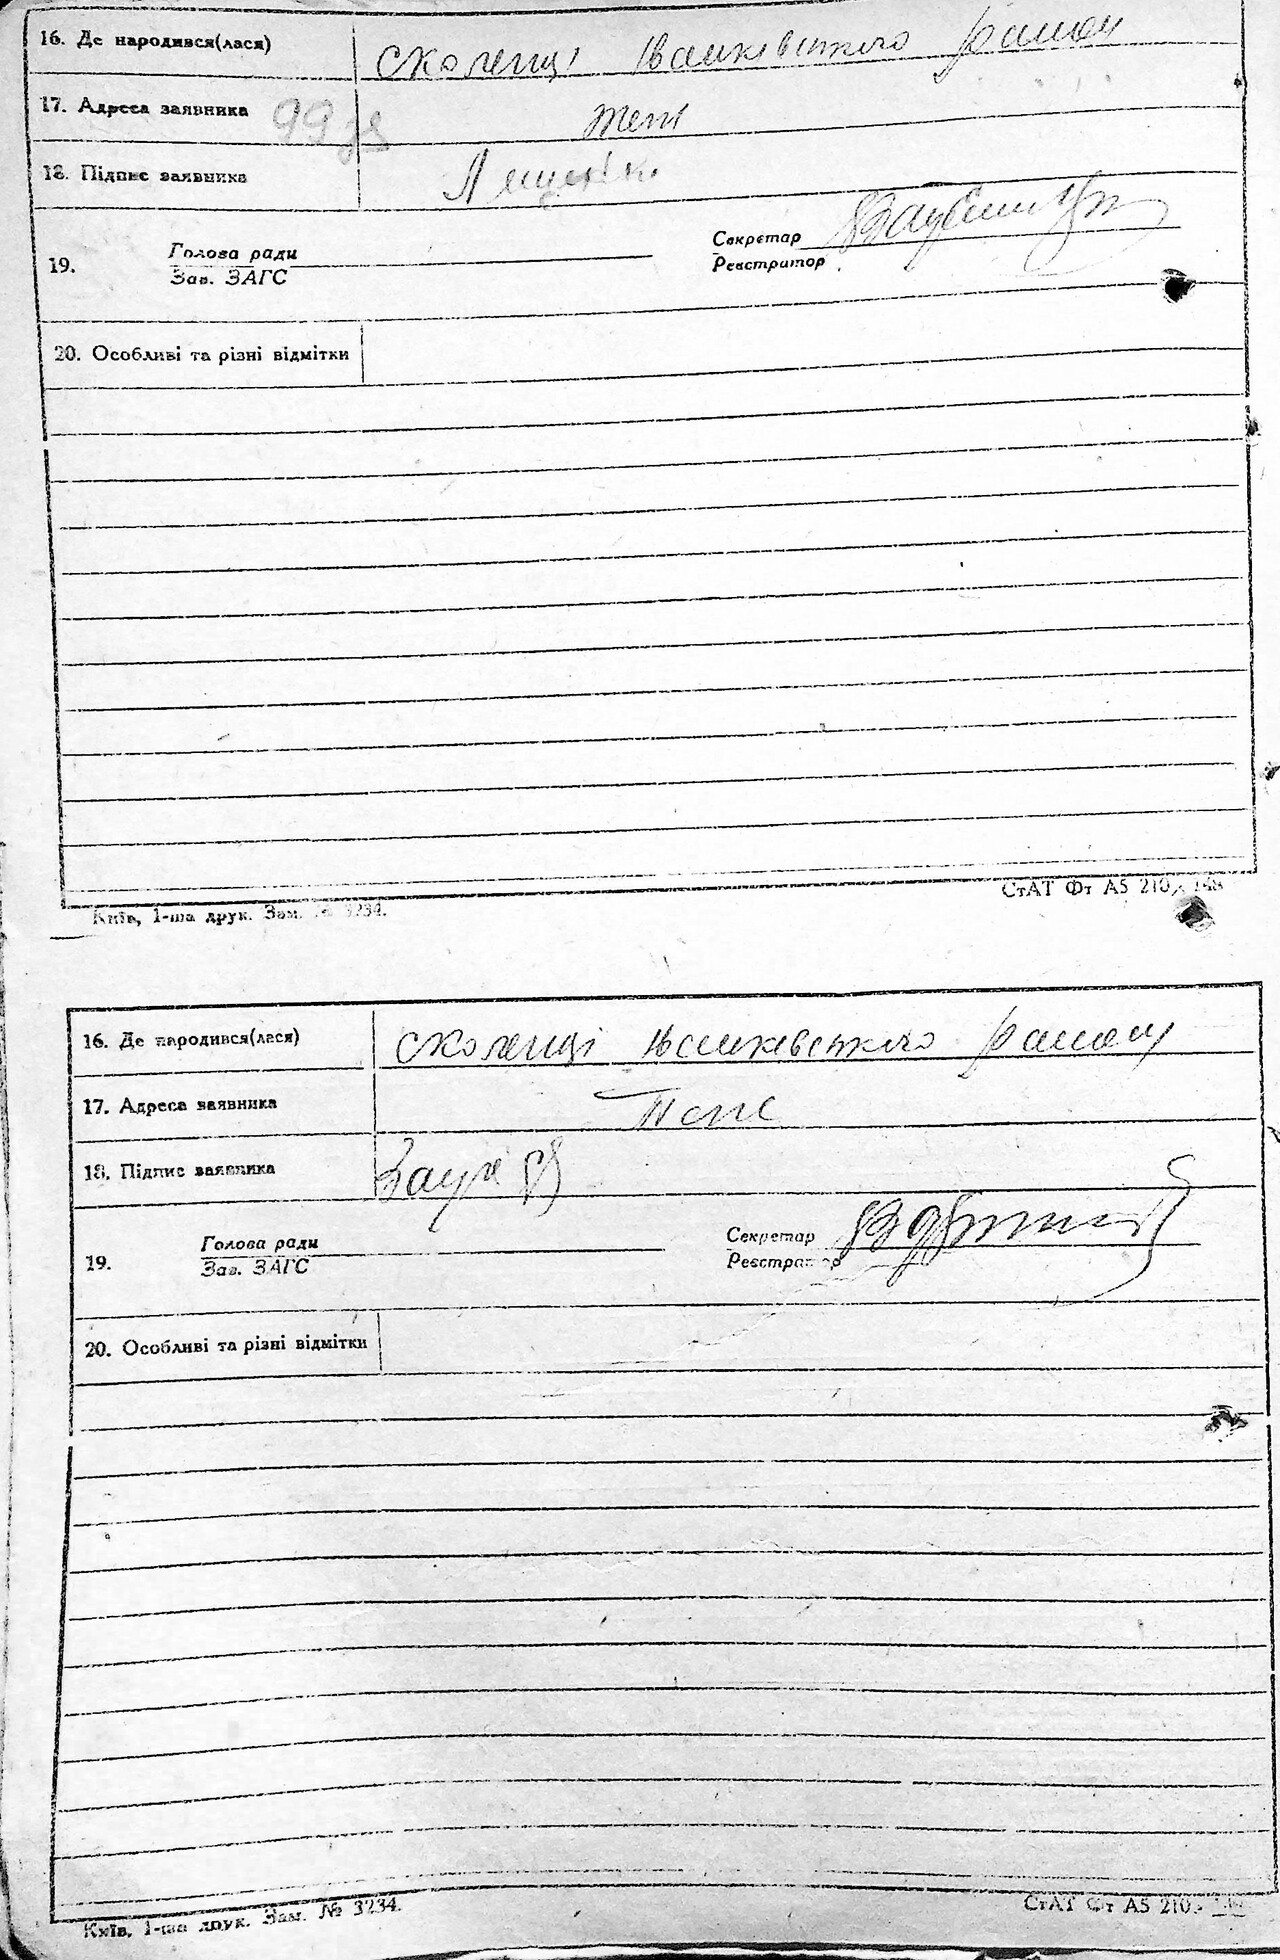 16. Де народився(лася) сколенці Іванківського району
17. Адреса заявника 99 зв тепі
18. Підпис заявника Ященко
Секретар
Голова ради
19.
Реєстратор
Зав. ЗАГС
20. Особливі та різні відмітки
Київ, 1-ша друк. Зам. № 3234.
СтАТ Фт А5 210 148
16. Де народився(лася) сколенці Іванківського району
17. Адреса заявника
18. Підпис заявника
Секретар
Голова ради
19.
Реєстратор
Зав. ЗАГС
20. Особливі та різні відмітки
Київ, 1-ша друк. Зам. № 3234.
СтАТ Фт А5 210